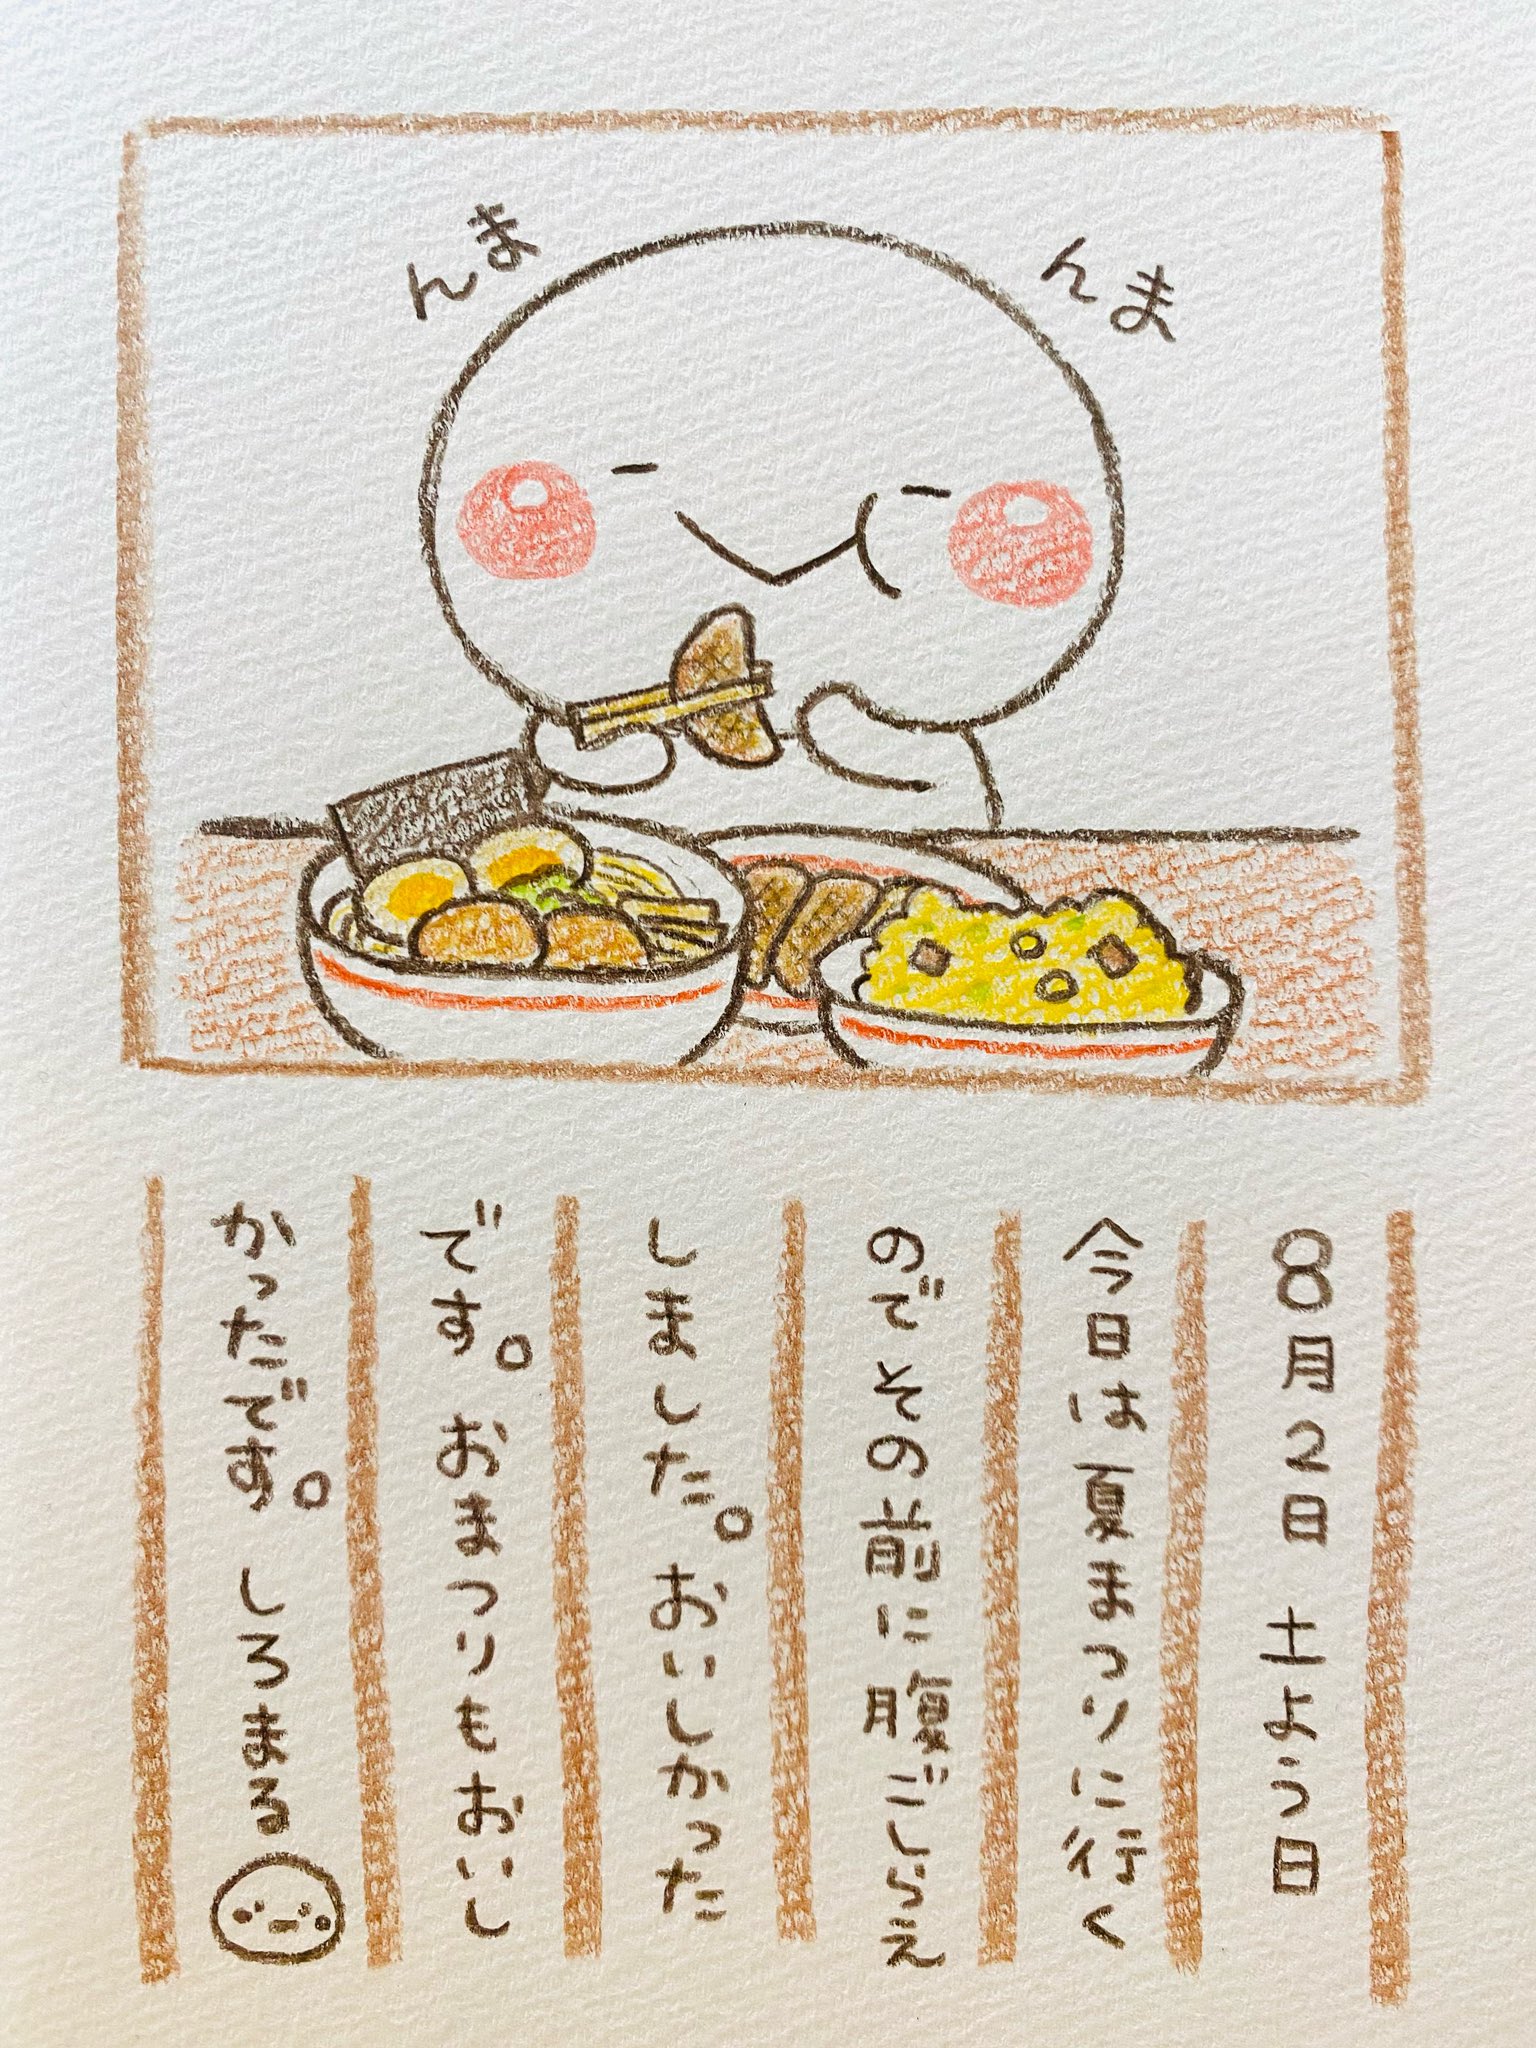 んま
んま
8月2日 土よう日
今日は夏まつりに行く
のでその前に腹ごしらえ
しました。おいしかった
です。おまつりもおいし
かったです。しろまる